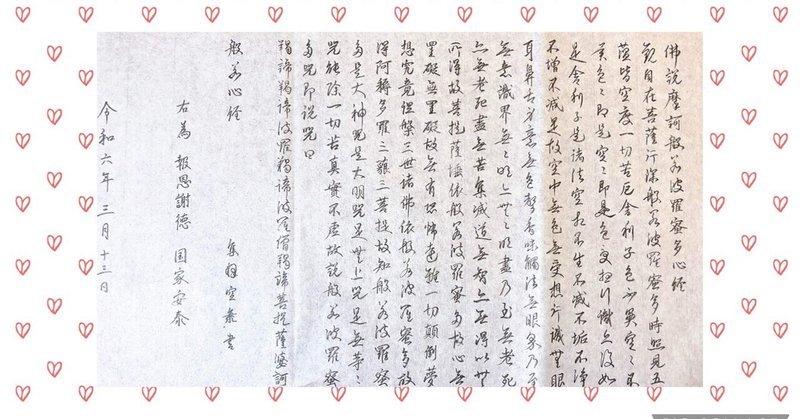 佛説摩訶般若波羅蜜多心経
観自在菩薩行深般若波羅蜜多時照見五
蘊皆空度一切苦厄舎利子色不異空々不
異色々即是空々即是色受想行識亦復如
是舎利子是諸法空相不生不滅不垢不浄
不増不減是故空中無色無受想行識無眼
耳鼻舌身意無色聲香味觸法無眼界乃至
無意識界無々明亦無々明盡乃至無老死
亦無老死盡無苦集滅道無智亦無得以無
所得故菩提薩埵依般若波羅蜜多故心無
罣礙無罣礙故無有恐怖遠離一切顛倒夢
想究竟涅槃三世諸佛依般若波羅蜜多故
得阿耨多羅三藐三菩提故知般若波羅蜜
多是大神咒是大明咒是無上咒是無等々
咒能除一切苦真實不虚故説般若波羅蜜
多咒即説咒曰
羯諦羯諦波羅羯諦波羅僧羯諦菩提薩婆訶
般若心経
空 書
右為 報恩謝徳 国家安泰
令和六年三月十三日